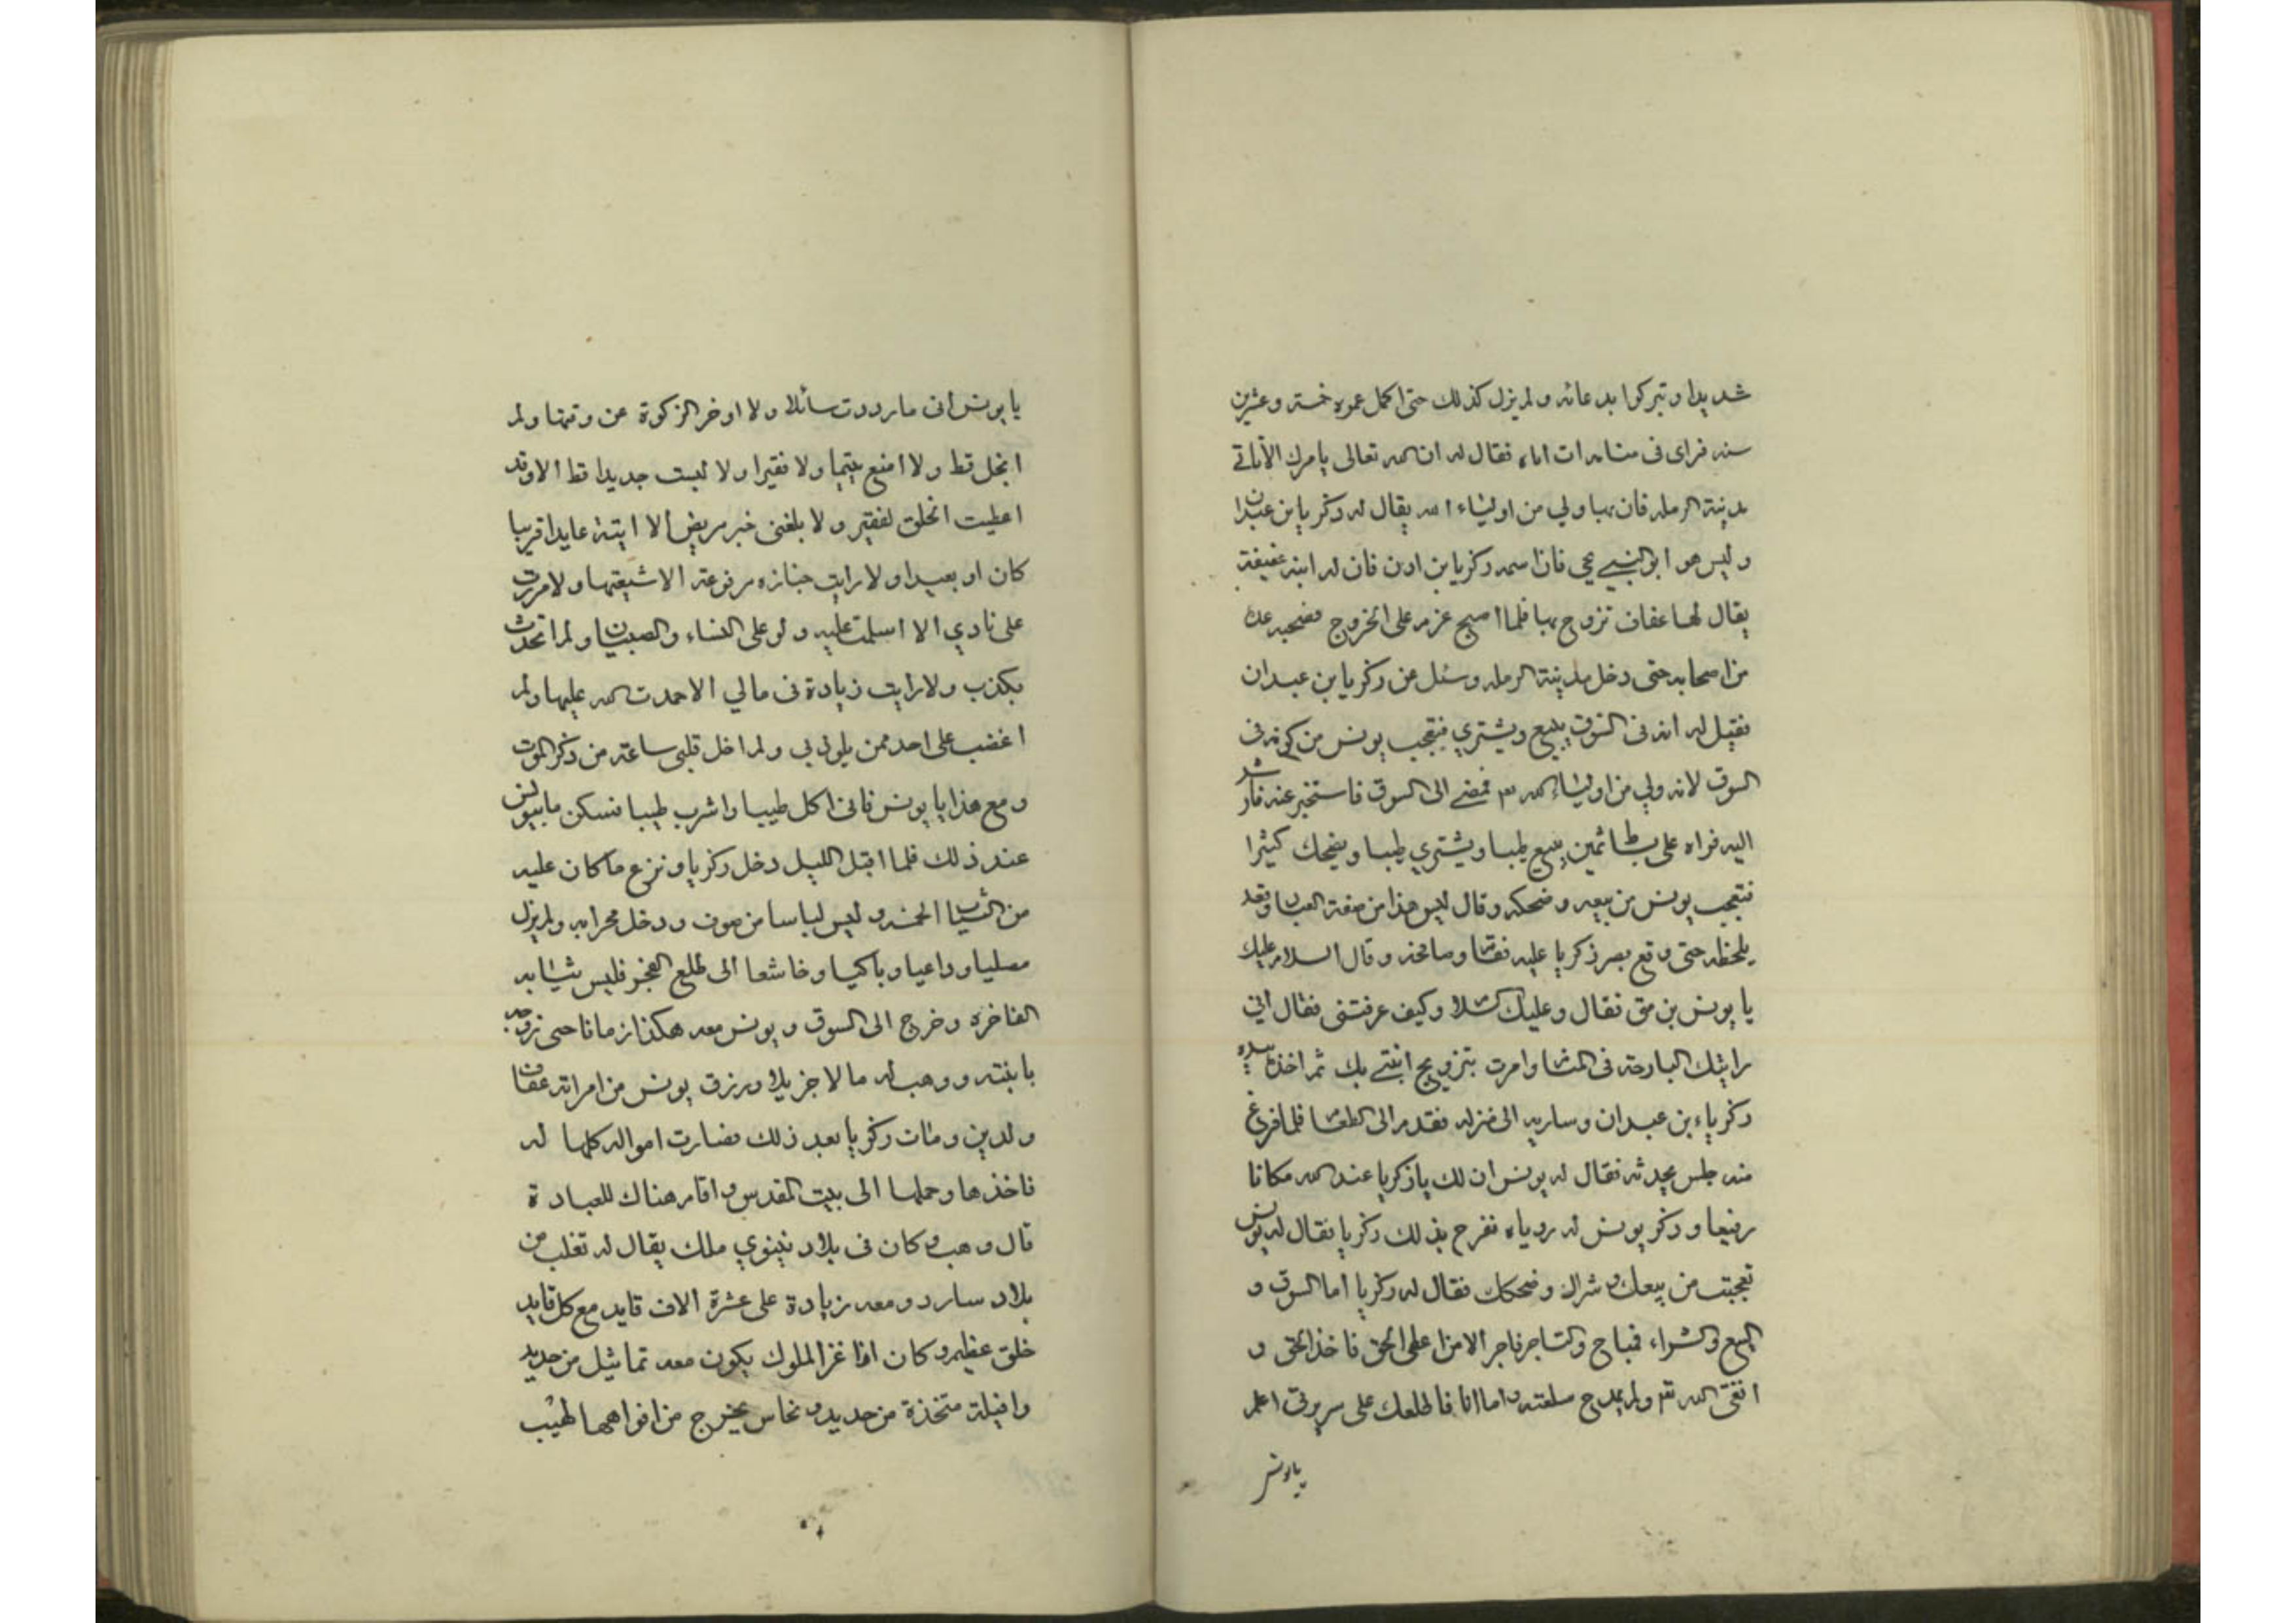 شديدا وتبركوا بدعائه ولم يزل كذلك حتى اكمل عمره خمسة وعشرين
سنه فراى فى منامه ات اتاه فقال له ان الله تعالى يامرك ان تاتى
مدينة الرمله فان بها ولي من اولياء الله يقال له زكريا بن عبدان
وليس هو ابو النبي يحي فان اسمه زكريا بن ادن فان له ابنه عفيفة
يقال لها عفاف تزوج بها فلما اصبح عزم على الخروج فصحبه عدة
من اصحابه حتى دخل مدينة الرمله وسئل عن زكريا بن عبدان
فقيل له انه فى السوق يبيع ويشتري فتعجب يونس من كونه فى
السوق لانه ولي من اولياء الله تع فمضى الى السوق فاستخبر عنه فارشد
اليه فراه على بساط ثمين يبيع طيبا ويشتري طيبا ويضحك كثيرا
فتعجب يونس من بيعه وضحكه وقال ليس هذا من صفة العباد وقعد
يلحظه حتى وقع بصر زكريا عليه فقام وصافحه وقال السلام عليك
يا يونس بن متى فقال وعليك السلام وكيف عرفتنى فقال اني
رايتك البارحة فى المنام وامرت بتزويج ابنتي بك ثم اخذ بيده
زكرياء بن عبدان وسار به الى منزله فقدم الى الطعام فلما فرغ
منه جلس يحدثه فقال له يونس ان لك يا زكريا عند الله مكانا
رفيعا وذكر يونس له روياه ففرح بذلك زكريا فقال له يونس
تعجبت من بيعك وشراك وضحكك فقال له زكريا اما السوق و
البيع والشراء فمباح والتاجر فاجر الا من اعطى الحق فاخذ الحق و
اتقى الله تع ولم يمدح سلعته واما انا فاطلعك على سريرتى اعلم
يا يونس
يا يونس انى ما رددت سائلا ولا اوخر الزكوة عن وقتها ولم
ابخل قط ولا امنع يتيما ولا فقيرا ولا لبست جديدا قط الا وقد
اعطيت الخلق لفقير ولا بلغنى خبر مريض الا اتيته عايدا قريبا
كان او بعيدا ولا رايت جنازه مرفوعة الا شيعتها ولا مررت
على نادي الا اسلمت عليه ولو على النساء والصبيان ولم اتحدث
بكذب ولا رايت زيادة فى مالي الا حمدت الله عليها ولم
اغضب على احد ممن يلوذ بي ولم اخل قلبى ساعة من ذكر الموت
ومع هذا يا يونس فانى اكل طيبا واشرب طيبا فسكن ما بيونس
عند ذلك فلما اقبل الليل دخل زكريا ونزع ما كان عليه
من الثياب الحسنه ولبس لباسا من صوف ودخل محرابه ولم يزل
مصليا وداعيا وباكيا وخاشعا الى طلع الفجر فلبس ثيابه
الفاخره وخرج الى السوق ويونس معه هكذا زمانا حتى زوجه
بابنته ووهب له مالا جزيلا ورزق يونس من امراته عفاف
ولدين ومات زكريا بعد ذلك فصارت امواله كلها له
فاخذها وحملها الى بيت المقدس واقام هناك للعبادة
قال وهب وكان فى بلاد نينوي ملك يقال له تغلب من
بلاد سارد ومعه زيادة على عشرة الاف قايد مع كل قايد
خلق عظيم وكان اذا غزا الملوك يكون معه تماثيل من حديد
وافيلة متخذة من حديد ونحاس يخرج من افواهها لهيب